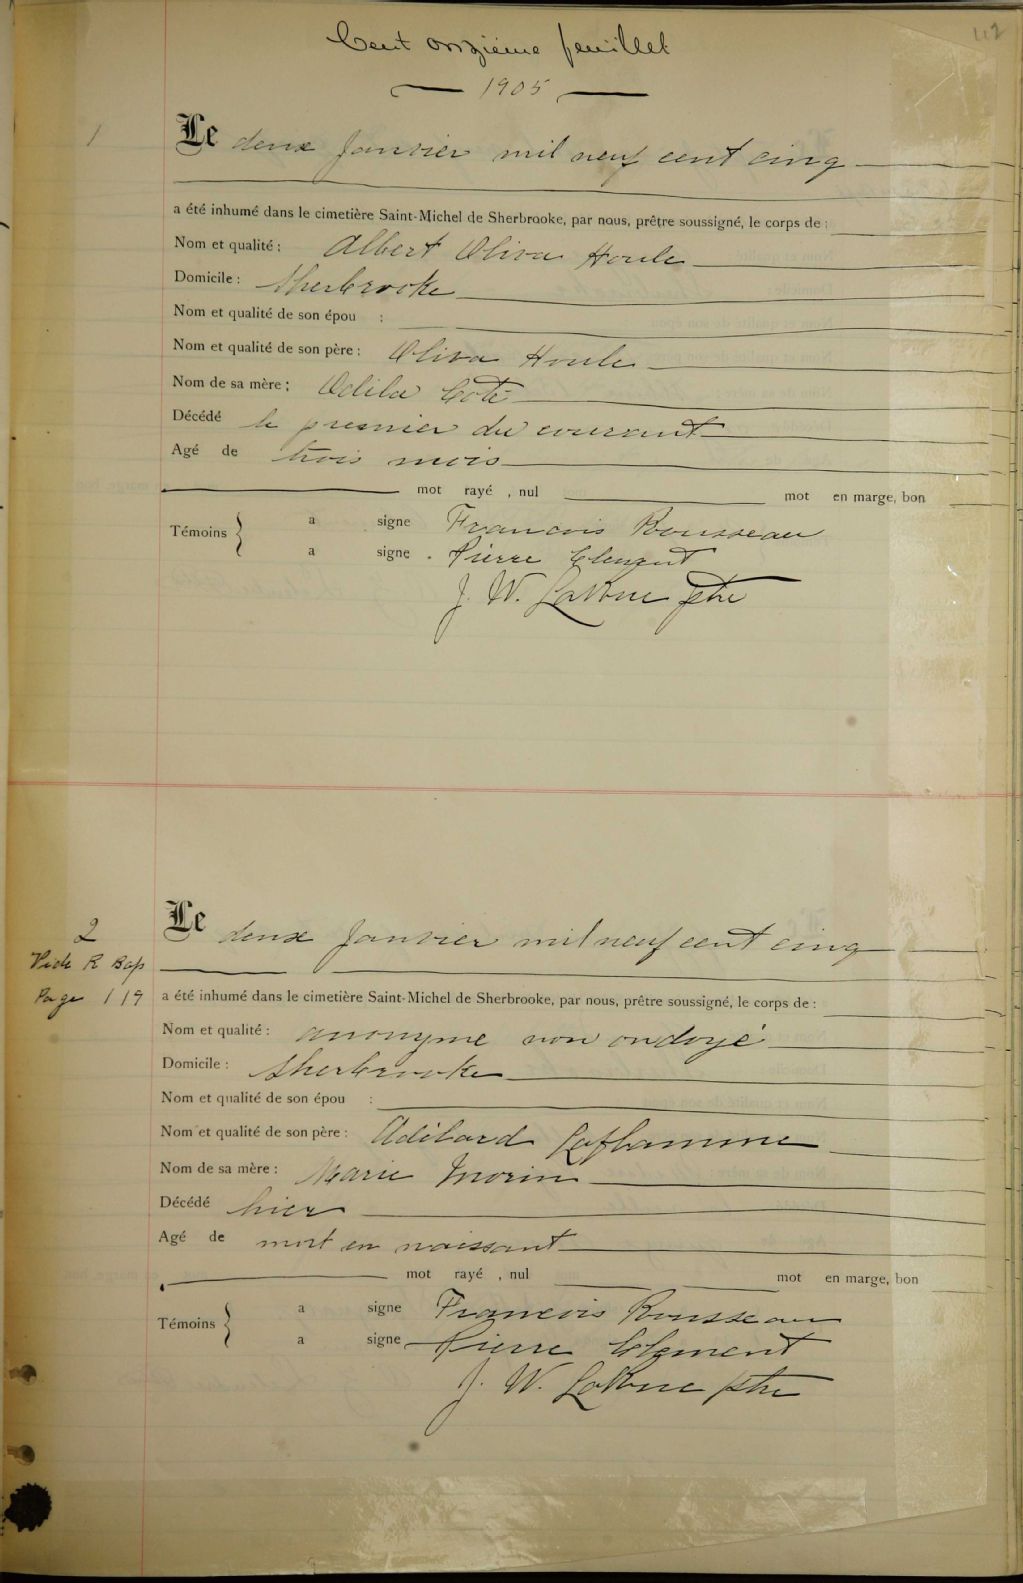 Cent onzième feuillet
112
1905
1
Le deux Janvier mil neuf cent cinq
a été inhumé dans le cimetière Saint-Michel de Sherbrooke, par nous, prêtre soussigné, le corps de :
Nom et qualité : Albert Oliva Houle
Domicile : Sherbrooke
Nom et qualité de son épou :
Nom et qualité de son père : Oliva Houle
Nom de sa mère : Odila Coté
Décédé le premier du courant
Agé de trois mois
mot rayé , nul mot en marge, bon
Témoins } a signe Francois Rousseau
a signe . Pierre Clement
J. W. ptre
2
Le deux Janvier mil neuf cent cinq
Vide R Bap
Page 119 a été inhumé dans le cimetière Saint-Michel de Sherbrooke, par nous, prêtre soussigné, le corps de :
Nom et qualité : anonyme non ondoyé
Domicile : Sherbrooke
Nom et qualité de son épou :
Nom et qualité de son père : Adélard Laflamme
Nom de sa mère : Marie Morin
Décédé hier
Agé de mort en naissant
mot rayé , nul mot en marge, bon
Témoins } a signe Francois Rousseau
a signe Pierre Clement
J. W. ptre